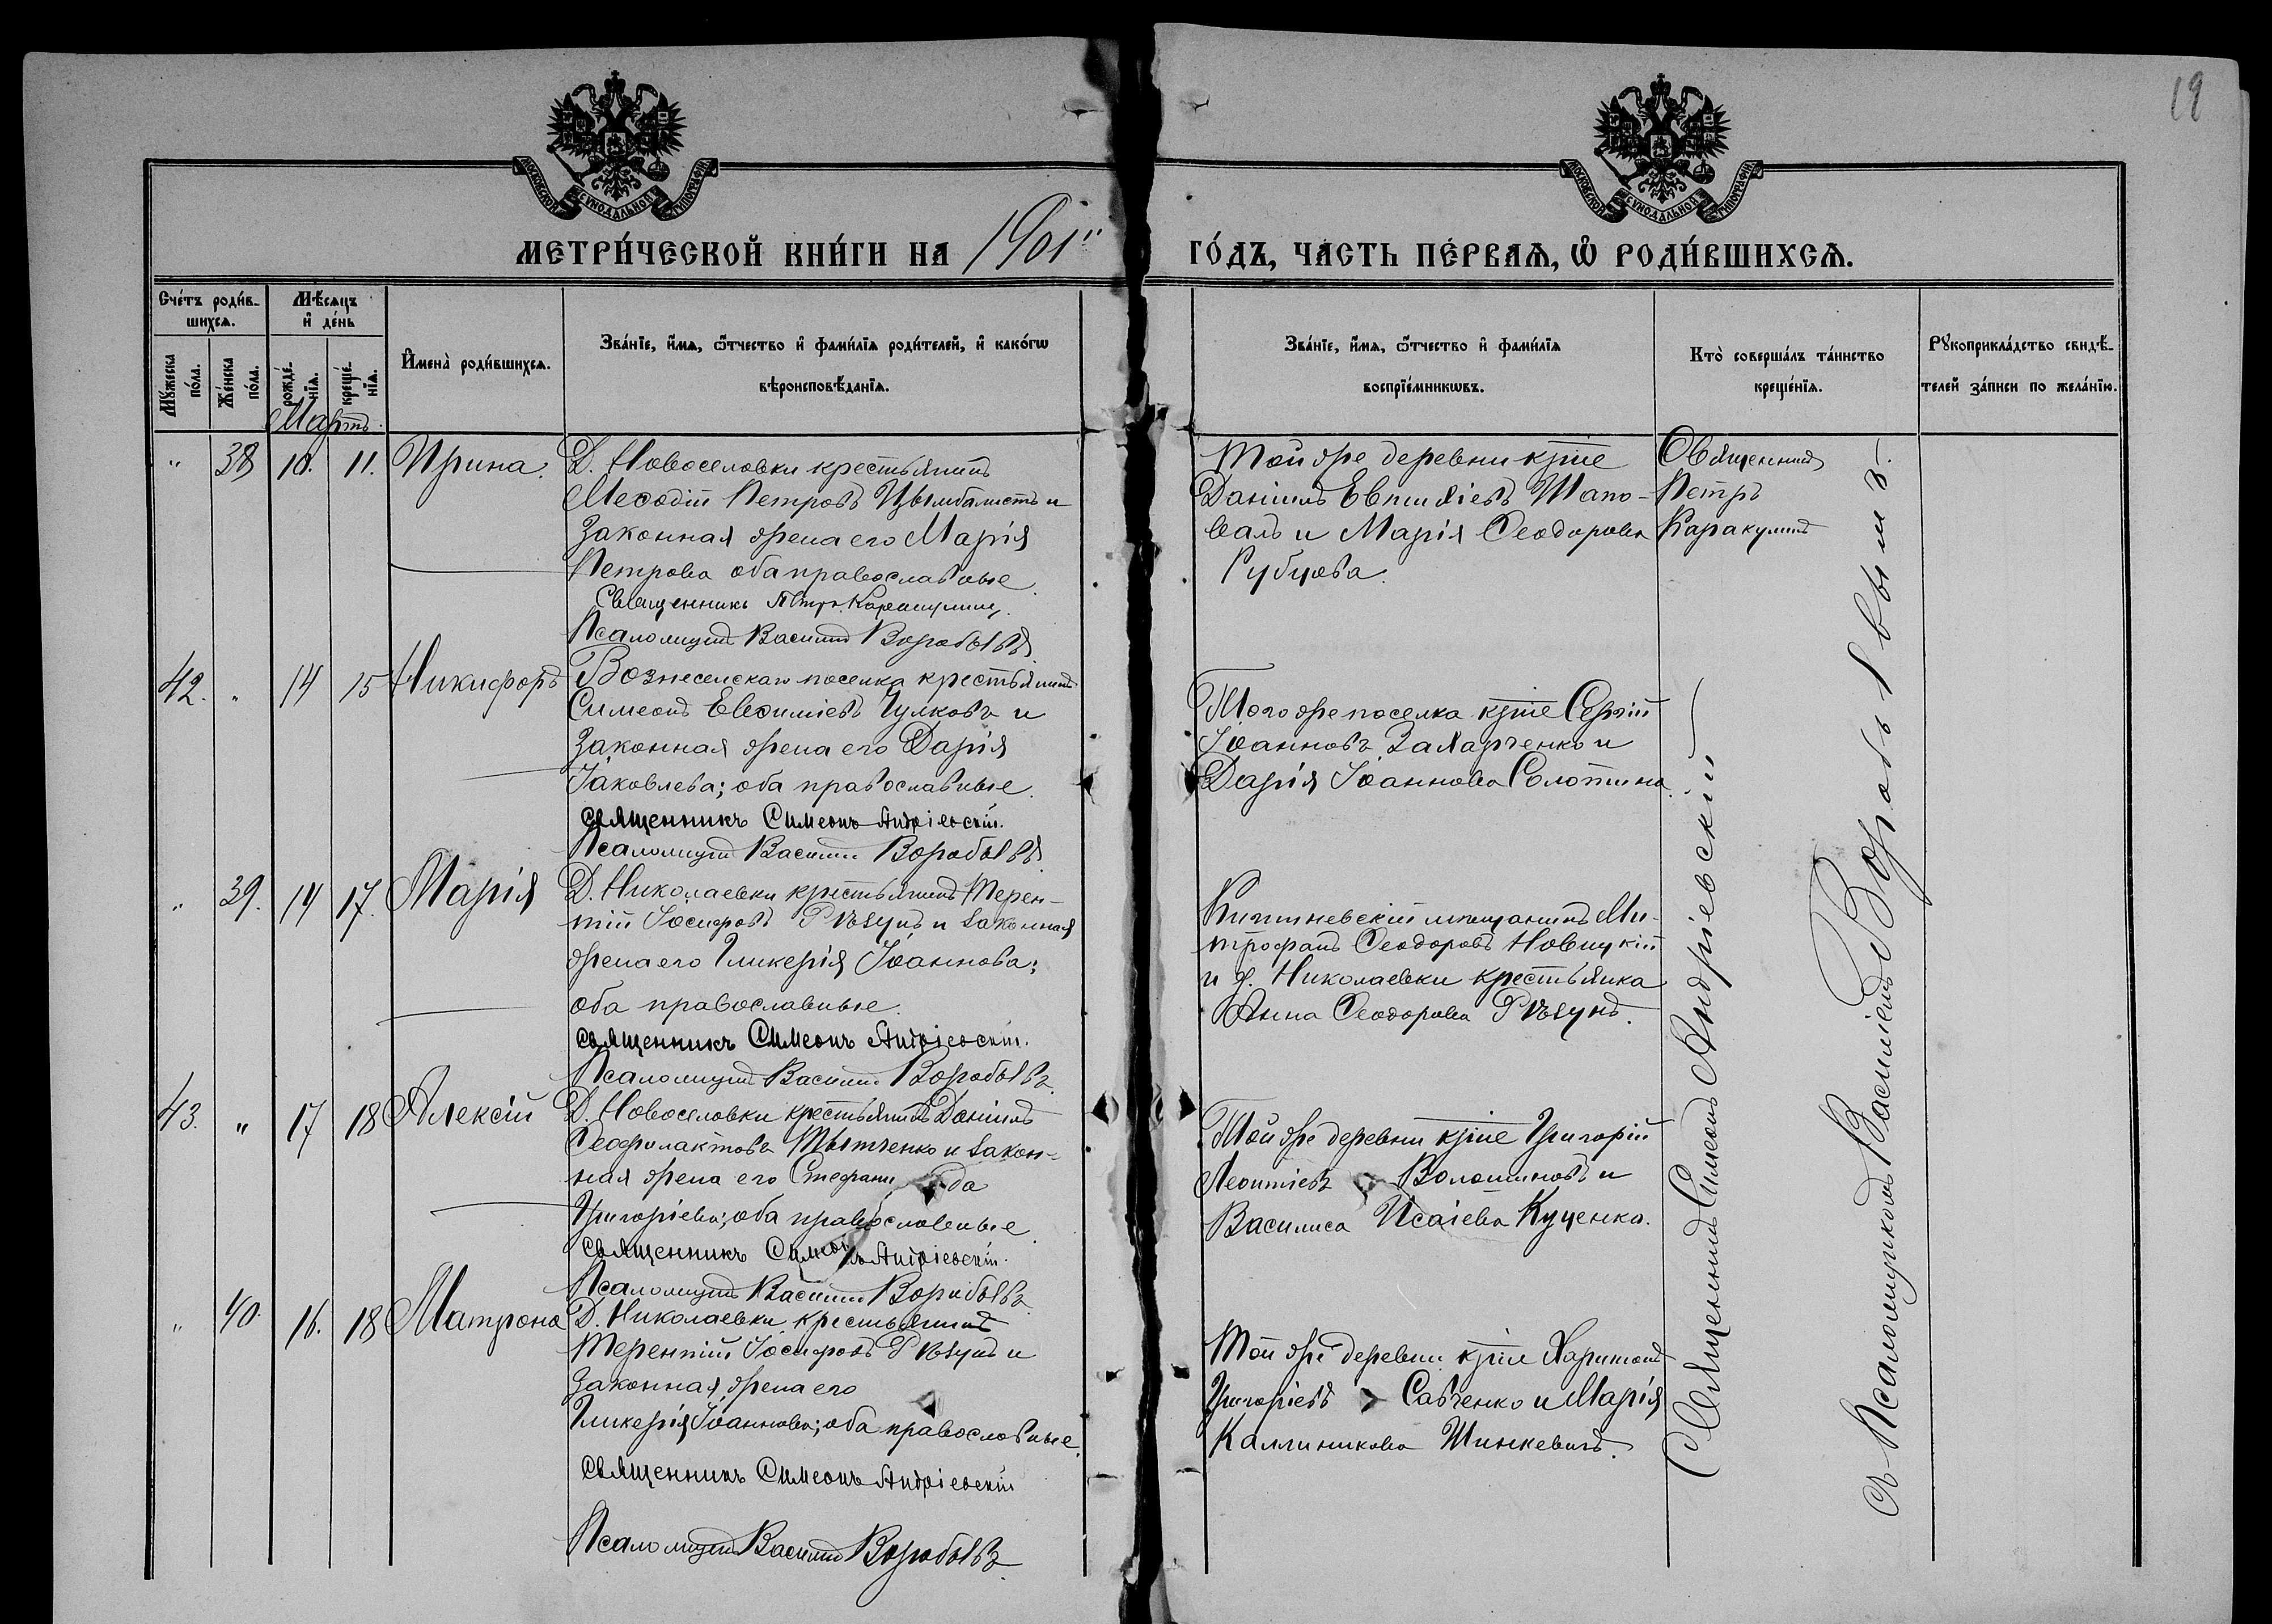 19
МОСКОВСКОЙ СѴНОДАЛЬНОЙ ТИПОГРАФІИ
МОСКОВСКОЙ СѴНОДАЛЬНОЙ ТИПОГРАФІИ
МЕТРИ́ЧЕСКОЙ КНИ́ГИ НА 1901"
ГО́ДЪ, ЧАСТЬ ПЕ́РВАѦ, Ѡ҆ РОДИ́ВШИХСѦ.
Сче́тъ роди́в-
шихсѧ.
Мѣ́сѧцъ
и҆ де́нь
Мꙋ́жеска
по́ла.
Же́нска
по́ла.
рожде́-
нїѧ.
креще́-
нїѧ.
И҆мена̀ роди́вшихсѧ.
Зва́нїе, и҆́мѧ, ѻ҆́тчество и҆ фами́лїѧ роди́телей, и҆ како́гѡ
вѣроисповѣ́данїѧ.
Зва́нїе, и҆́мѧ, ѻ҆́тчество и҆ фами́лїѧ
воспрїе́мникѡвъ.
Кто̀ соверша́лъ та́инство
креще́нїѧ.
Рꙋкоприкла́дство свидѣ́-
телей за́писи по жела́нїю.
Мартъ.
" 38 10. 11. Ирина.
Д. Новоселовки крестьянинъ
Меѳодій Петровъ Цымбалистъ и
законная жена его Марія
Петрова оба православные.
Священникъ Петръ Каракулинъ.
Псаломщикъ Василій Воробьевъ.
Той же деревни кр̅іне
Даніилъ Евтихіевъ Шапо-
валъ и Марія Ѳеодорова
Рубцова.
Священникъ
Петръ
Каракулинъ
42. " 14 15 Никифоръ
Вознесенскаго поселка крестьянинъ
Симеонъ Евѳиміевъ Чулковъ и
законная жена его Дарія
Іаковлева; оба православные.
Священникъ Симеонъ Андріевскій.
Псаломщикъ Василій Воробьевъ.
Того же поселка кр̅іне Сергій
Іоанновъ Захарченко и
Дарія Іоаннова Солотина.
" 39. 14 17. Марія
Д. Николаевки крестьянинъ Терен-
тій Іосифовъ Рѣзунъ и законная
жена его Гликерія Іоаннова;
оба православные.
Священникъ Симеонъ Андріевскій.
Псаломщикъ Василій Воробьевъ.
Кишиневскій мѣщанинъ Ми-
трофанъ Ѳеодоровъ Новицкій
и д. Николаевки крестьянка
Анна Ѳеодорова Рѣзунъ.
43. " 17 18 Алексій
Д. Новоселовки крестьянинъ Даніилъ
Ѳеофилактовъ Тытченко и закон-
ная жена его Стефани да
Григоріева; оба православные.
Священникъ Симеонъ Андріевскій.
Псаломщикъ Василій Воробьевъ.
Той же деревни кр̅іне Григорій
Леонтіевъ Волошиновъ и
Василиса Исаіева Куценко.
" 40. 16. 18 Матрона
Д. Николаевки крестьянинъ
Терентій Іосифовъ Рѣзунъ и
законная жена его
Гликерія Іоаннова; оба православные.
Священникъ Симеонъ Андріевскій
Псаломщикъ Василій Воробьевъ.
Той же деревни кр̅іне Харитонъ
Григоріевъ Савченко и Марія
Каллиникова Шинкевичъ.
Священникъ Симеонъ Андріевскій
съ Псаломщикомъ Василіемъ Воробьевымъ.